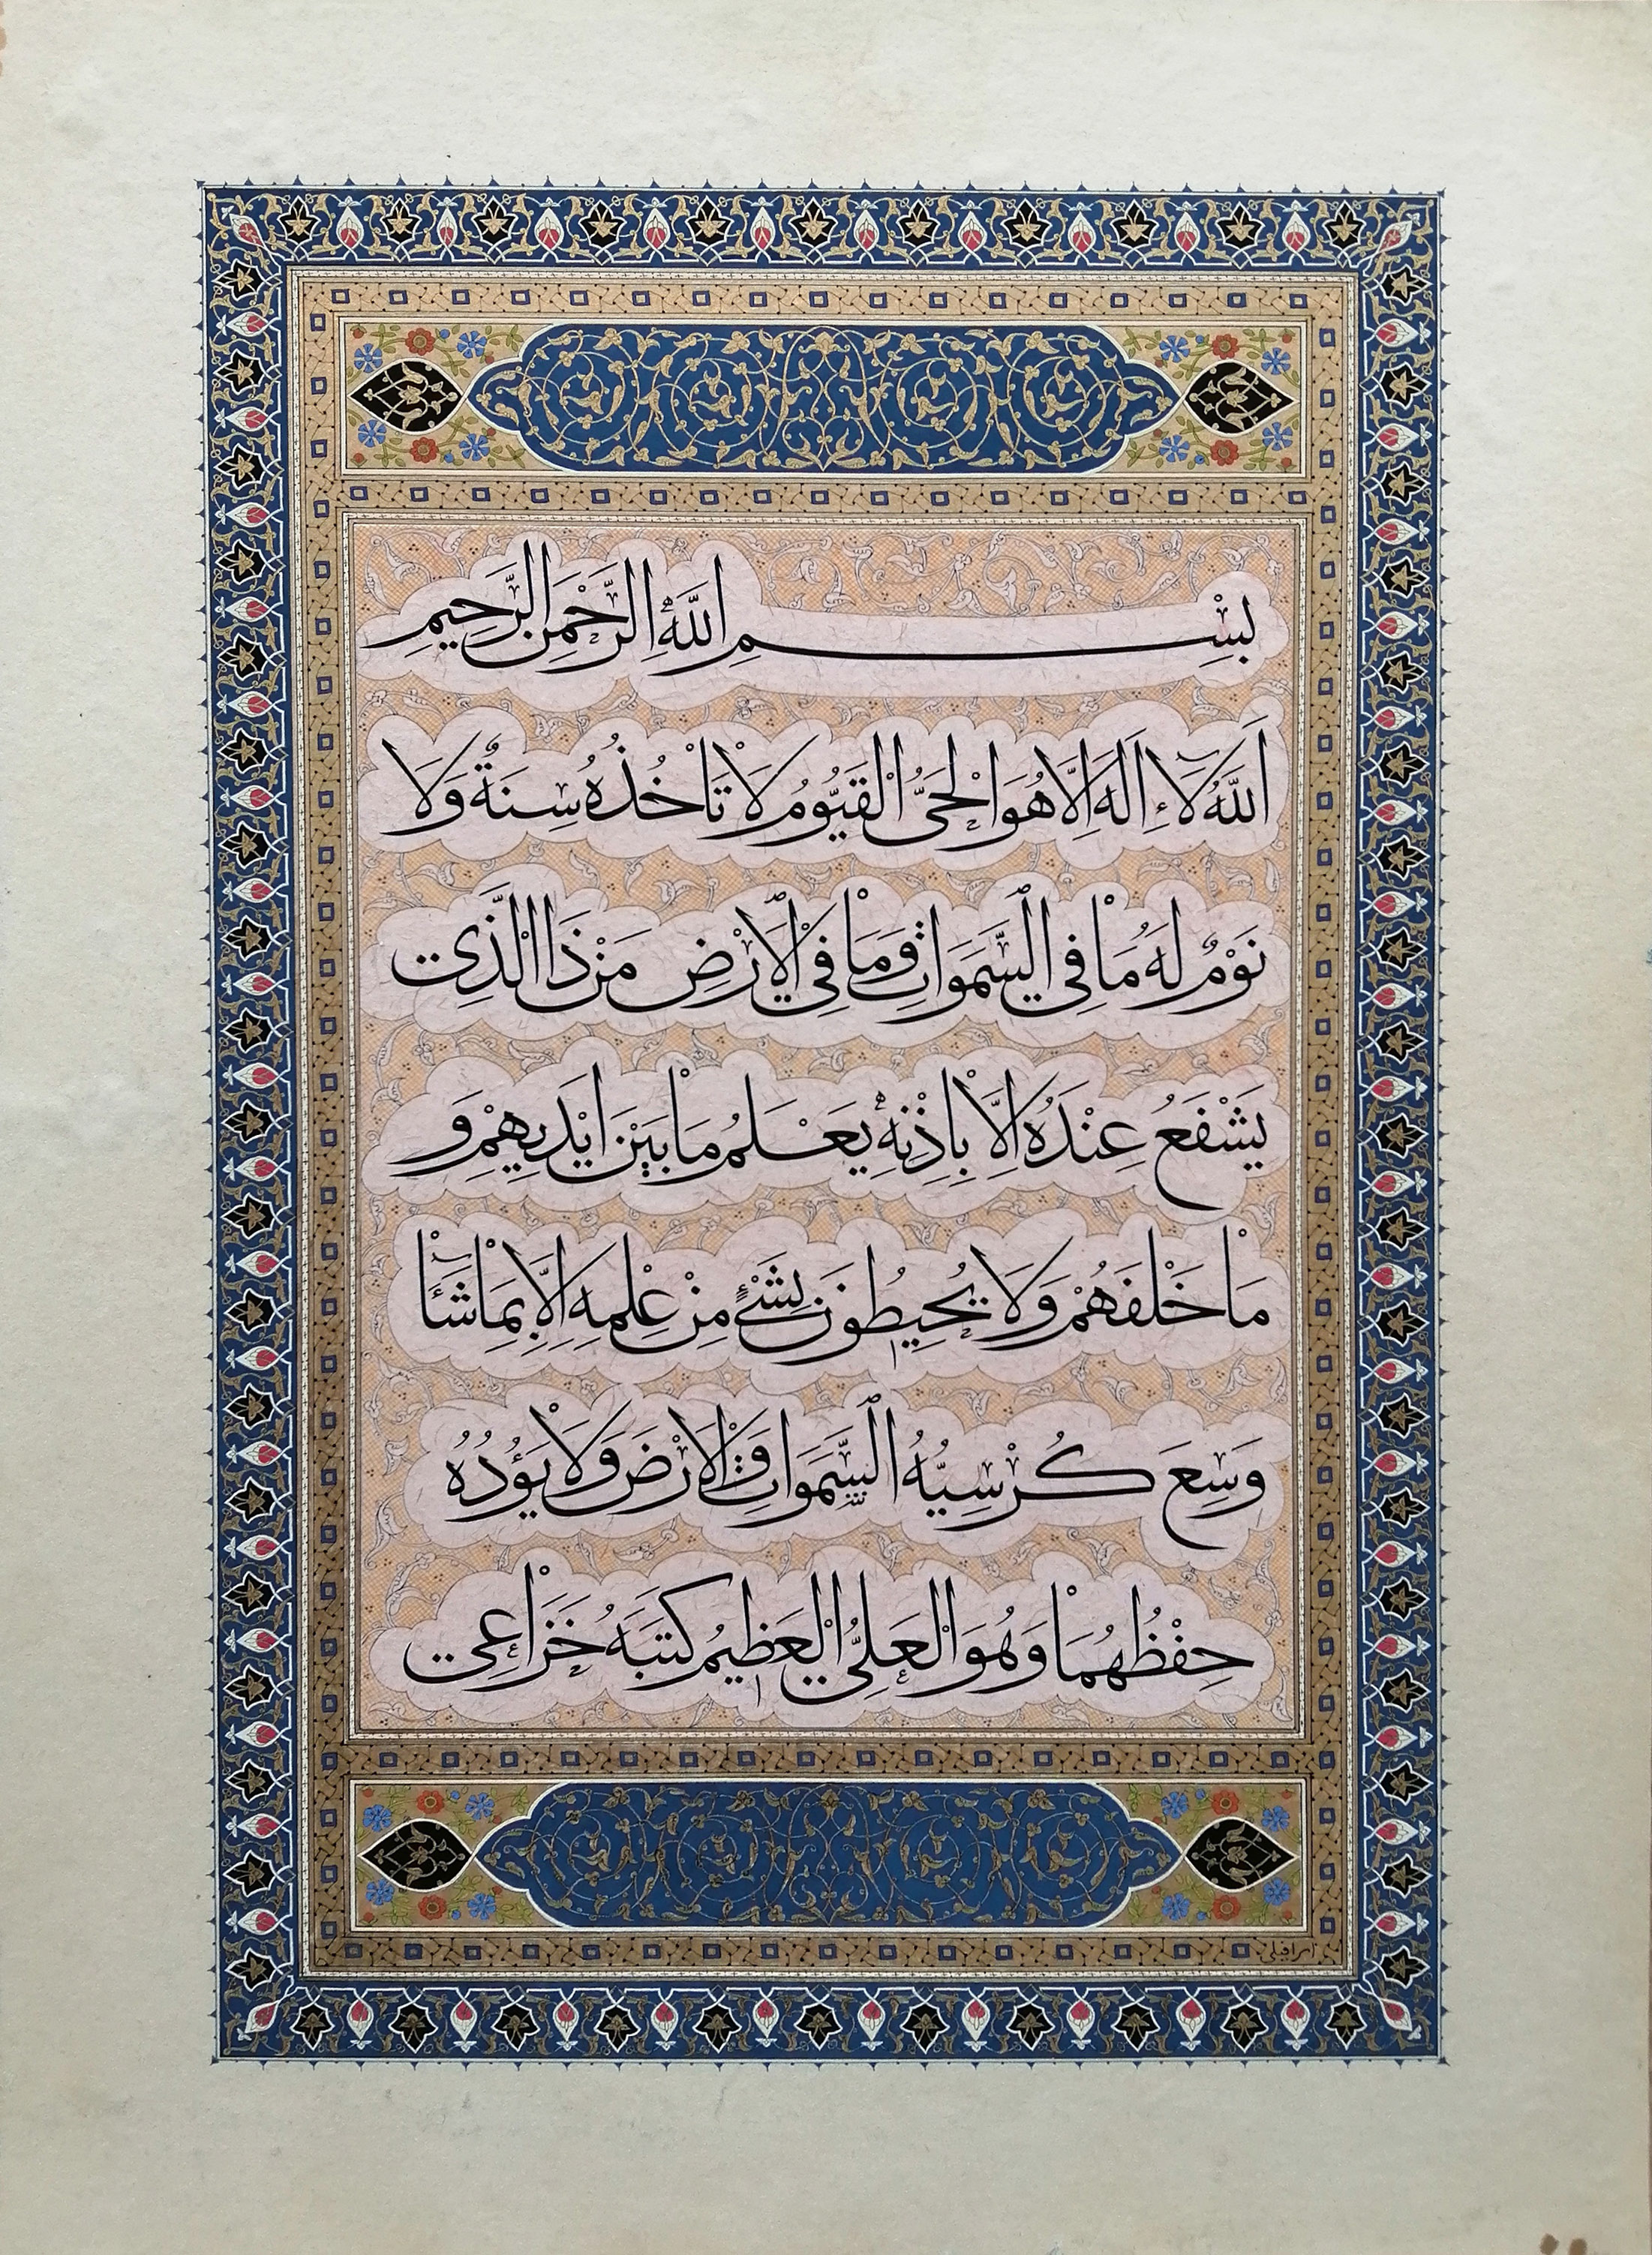 بِسْمِ اللَّهِ الرَّحْمٰنِ الرَّحِیمِ
اَللَّهُ لَآ اِلَهَ اِلَّا هُوَ الْحَیُّ الْقَیُّومُ لَا تَاْخُذُهُ سِنَةٌ وَلَا
نَوْمٌ لَهُ مَا فِی السَّمَوَاتِ وَمَا فِی الْاَرْضِ مَنْ ذَا الَّذِی
یَشْفَعُ عِنْدَهُ اِلَّا بِاِذْنِهِ یَعْلَمُ مَا بَیْنَ اَیْدِیهِمْ وَ
مَا خَلْفَهُمْ وَلَا یُحِیطُونَ بِشَیْءٍ مِنْ عِلْمِهِ اِلَّا بِمَا شَآءَ
وَسِعَ کُرْسِیُّهُ السَّمَوَاتِ وَالْاَرْضَ وَلَا یَؤُدُهُ
حِفْظُهُمَا وَهُوَ الْعَلِیُّ الْعَظِیمُ کَتَبَهُ خَزَاعِی